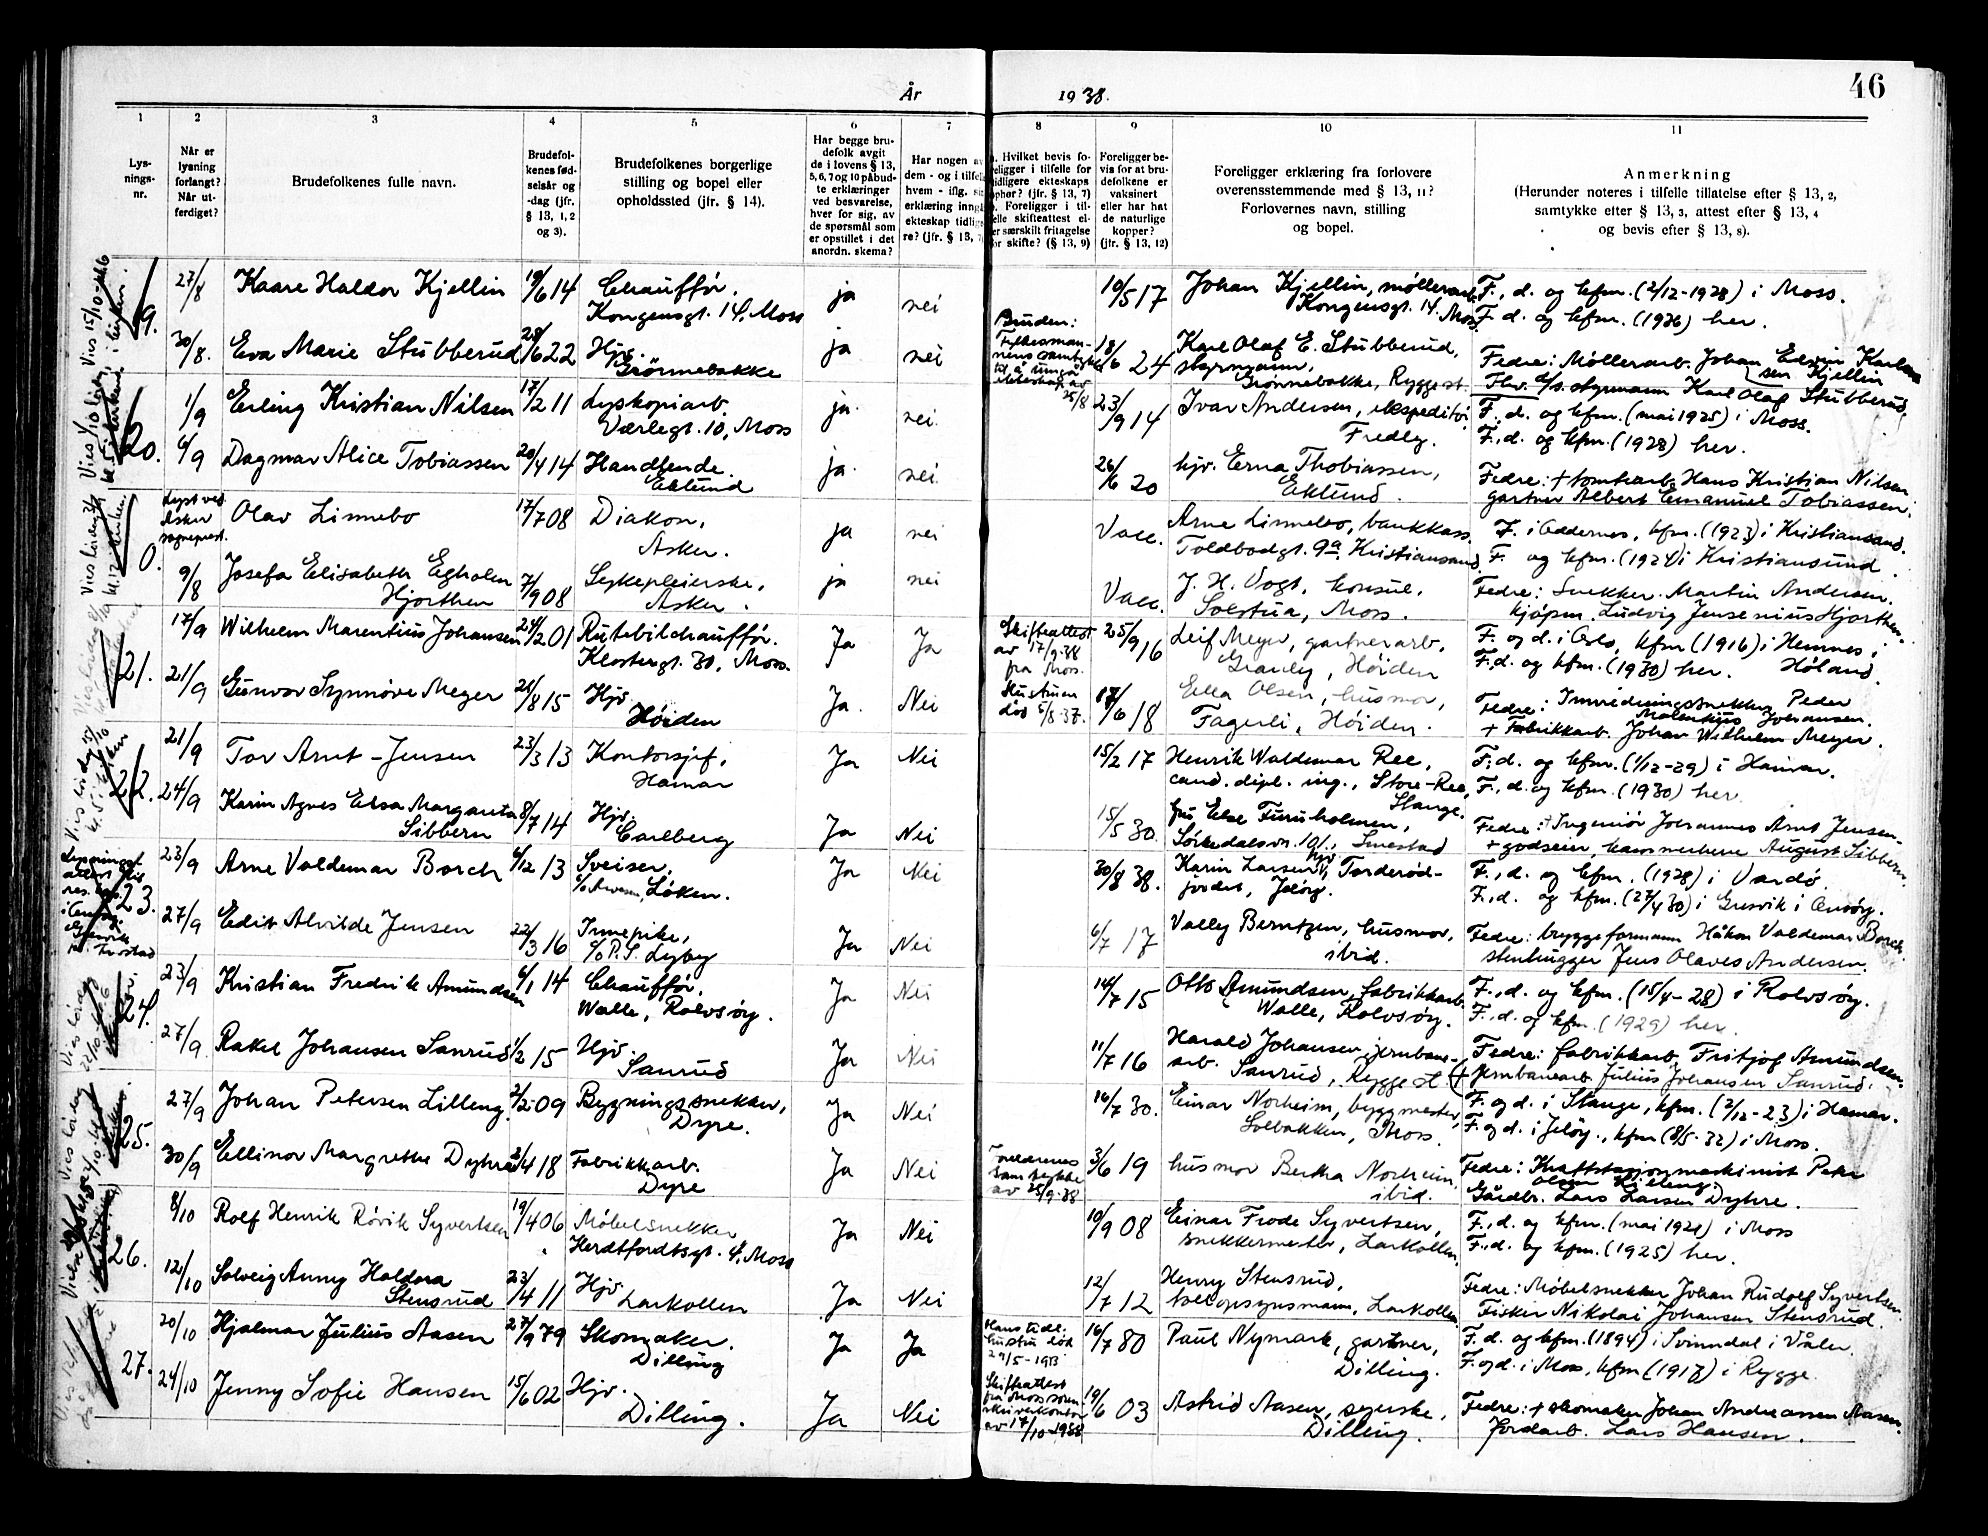 46
År 1938.
1
2
3
4
5
6
7
8
9
10
11
Lys-
nings-
nr.
Når er
lysning
forlangt?
Når ut-
ferdiget?
Brudefolkenes fulle navn.
Brudefol-
kenes fød-
selsår og
-dag (jfr.
§ 13, 1, 2
og 3).
Brudefolkenes borgerlige
stilling og bopel eller
opholdssted (jfr. § 14).
Har begge bru-
defolk avgit
de i lovens § 13,
5, 6, 7 og 10 påbud-
te erklæringer
ved besvarelse,
hver for sig, av
de spørsmål som
er opstillet i det
anordn. skema?
Har nogen av
dem - og i tilfe
hvem - iflg. si
erklæring inng
ekteskap tidlig
re? (jfr. § 13,
. Hvilket bevis fo-
religger i tilfelle for
tidligere ekteskaps
ophør? (jfr. § 13, 7)
. Foreligger i til-
felle skifteattest el-
er særskilt fritagelse
for skifte? (§ 13, 9)
Foreligger be-
vis for at bru-
defolkene er
vaksinert
eller har hat
de naturlige
kopper?
(jfr. § 13, 12)
Foreligger erklæring fra forlovere
overensstemmende med § 13, 11?
Forlovernes navn, stilling
og bopel.
Anmerkning
(Herunder noteres i tilfelle tillatelse efter § 13, 2,
samtykke efter § 13, 3, attest efter § 13, 4
og bevis efter § 13, 8).
19.
27/8 Kaare Haldor Kjellin 19/6 14 Chauffør. ja nei 10/5 17 Johan Kjellin, møllerarb. F., d. og kfm. (2/12-1928) i Moss.
Kongensgt. 14, Moss Kongensgt. 14, Moss. F. d. og kfm. (1936) her.
30/8. Eva Marie Stubberud 28/6 22 Hjv. ja nei Bruden: 18/6 24 Karl Olaf E. Stubberud, Fedre: Møllerarb. Johan Edvin Karl
Grønnebakke styrmann, sen Kjellin
25/8 Grønnebakke, Rygge st. styrmann Karl Olaf Stubberud.
20.
1/9 Erling Kristian Nilsen 17/2 11 Lyskopiarb. ja. nei. 23/9 14 Ivar Andersen, ekspeditør F. d. og kfm. (mai 1925) i Moss.
Værlegt. 10, Moss Fredly. F., d. og kfm. (1928) her.
6/9 Dagmar Alice Tobiassen 20/4 14 Handlende. ja. nei. 26/6 20 hjv. Erna Thobiassen, Fedre: + tomtearb. Hans Kristian Nilsen
Eklund Eklund. gartner Albert Emanuel Tobiassen.
0.
Lyst ved
Asker
sogneprest.
Olav Linnebo 17/7 08 Diakon, ja nei Vacc. Arne Linnebo, bankkass. F. i Oddernes, kfm. (1923) i Kristiansand.
Asker. Toldbodgt. 9a Kristiansand F. og kfm. (1924) i Kristiansund.
9/8 Josefa Elisabeth Egholm 7/9 08 Sykepleierske, ja nei Vacc. J. H. Vogt, konsul, Fedre: Snekker Martin Andersen,
Hjorthen Asker. Solstua, Moss. kjøpm. Ludvig Jensenius Hjorthen.
21.
17/9 Wilhelm Marentius Johansen 24/2 01 Rutebilchauffør. Ja Ja Skifteattest 25/9 16 Leif Meyer, gartnerarb, F. og d. i Oslo, kfm (1916) i Hemnes i
Klostergt. 30, Moss. av 17/9-38 Granly, Høiden F., d. og kfm. (1930) her. Høland.
fra Moss.
21/9 Gunvor Synnøve Meyer 21/8 15 Hjv. Ja. Nei Hustruen 17/6 18 Ella Olsen, husmor, Fedre: Innredningssnekker Peder
Høiden død 5/8-37. Fagerli, Høiden. Johansen.
+ Fabrikkarb. Johan Wilhelm Meyer.
22.
21/9 Tor Arnt-Jensen 23/3 13 Kontorsjef, Ja Nei 15/2 17 Henrik Waldemar Ree, F., d. og kfm. (1/12-29) i Hamar.
Hamar cand. dipl. ing., Store-Ree, F., d. og kfm. (1930) her
Stange.
24/9 Karin Agnes Elsa Margareta 8/7 14 Hjv. Ja Nei 15/5 30. fru Else Furuholmen, Fedre: + Ingeniør Johannes Arnt Jensen.
Sibbern Carlberg Sørkedalsvn. 101, Smestad + godseier, kammerherre August Sibbern.
23.
23/9 Arne Valdemar Borch 6/12 13 Sveiser. Ja Nei 30/8 38. Karin Larsen, hjv, Torderød- F., d. og kfm. (1928) i Vardø.
Løken. jordet, Jeløy. F., d. og kfm. (27/4 30) i Gresvik i Onsøy.
27/9 Edit Alvilde Jensen 22/3 16 Innepike, Ja Nei 6/7 17 Vally Berntzen, husmor, Fedre: bryggeformann Håkon Valdemar Borch
c/o P. S. Lyby ibid. stenhugger Jens Olaves Andersen.
24.
23/9 Kristian Fredrik Amundsen 6/1 14 Chauffør, Ja Nei 14/7 15 Otto Amundsen, fabrikkarb. F., d. og kfm. (15/4-28) i Rolvsøy.
Walle, Rolvsøy. Walle, Rolvsøy. F., d. og kfm. (1929) her.
27/9 Rakel Johansen Sanrud 1/2 15 Hjv. Ja Nei 11/7 16 Harald Johansen, jernbane- Fedre: fabrikkarb. Fritjof Amundsen.
Sanrud arb. Sanrud, Rygge st. + Jernbanearb. Julius Johansen Sanrud.
25.
27/9 Johan Petersen Lilleng 2/2-09 Bygningssnekker, Ja Nei 16/7 30. Einar Norheim, byggmester, F. og d. i Stange, kfm. (2/12-23) i Hamar.
Dyre. Solbakken, Moss. F. og d. i Jeløy., kfm (8/5-32) i Moss.
30/9 Ellinor Margrethe Dyhre 2/4 18 Fabrikkarb. Ja Nei Foreldrenes 3/6 19 husmor Bertha Norheim, Fedre: Kraftstasjonsmaskinist Peter
Dyre samtykke ibid.
av 25/9-38 Gårdbr. Lars Larsen Dyhre.
26.
8/10 Rolf Henrik Rørvik Syvertsen 19/4 06 Møbelsnekker Ja Nei 10/9 08 Einar Frode Syvertsen, F., d. og kfm. (mai 1921) i Moss
Herdtfordtsgt. 4, Moss snekkermester, Larkollen. F., d. og kfm. (1925) her.
12/10 Solveig Anny Haldora 23/4 11 Hjv Ja Nei 12/7 12 Henry Stensrud, Fedre: Møbelsnekker Johan Rudolf Syvertsen
Stensrud Larkollen tollopsynsmann, Larkollen. Fisker Nikolai Johansen Stensrud.
27.
20/10 Hjalmar Julius Aasen 27/9 79 Skomaker. Ja Ja Hans tidl. 16/7 80 Paul Nymark, gartner, F. d. og kfm. (1894) i Svinndal i Våler.
Dilling hustru død Dilling. F. og d. i Moss, kfm (1917) i Rygge.
29/5-1913
24/10 Jenny Sofie Hansen 15/6 02 Hjv. Ja Nei Skifteattest 19/6 03 Astrid Aasen, syerske, Fedre: + skomaker Johan Andreassen Aasen,
Dilling. fra Moss soren- Dilling. Jordarb. Lars Hansen.
skriverkontor
av 17/10-1938